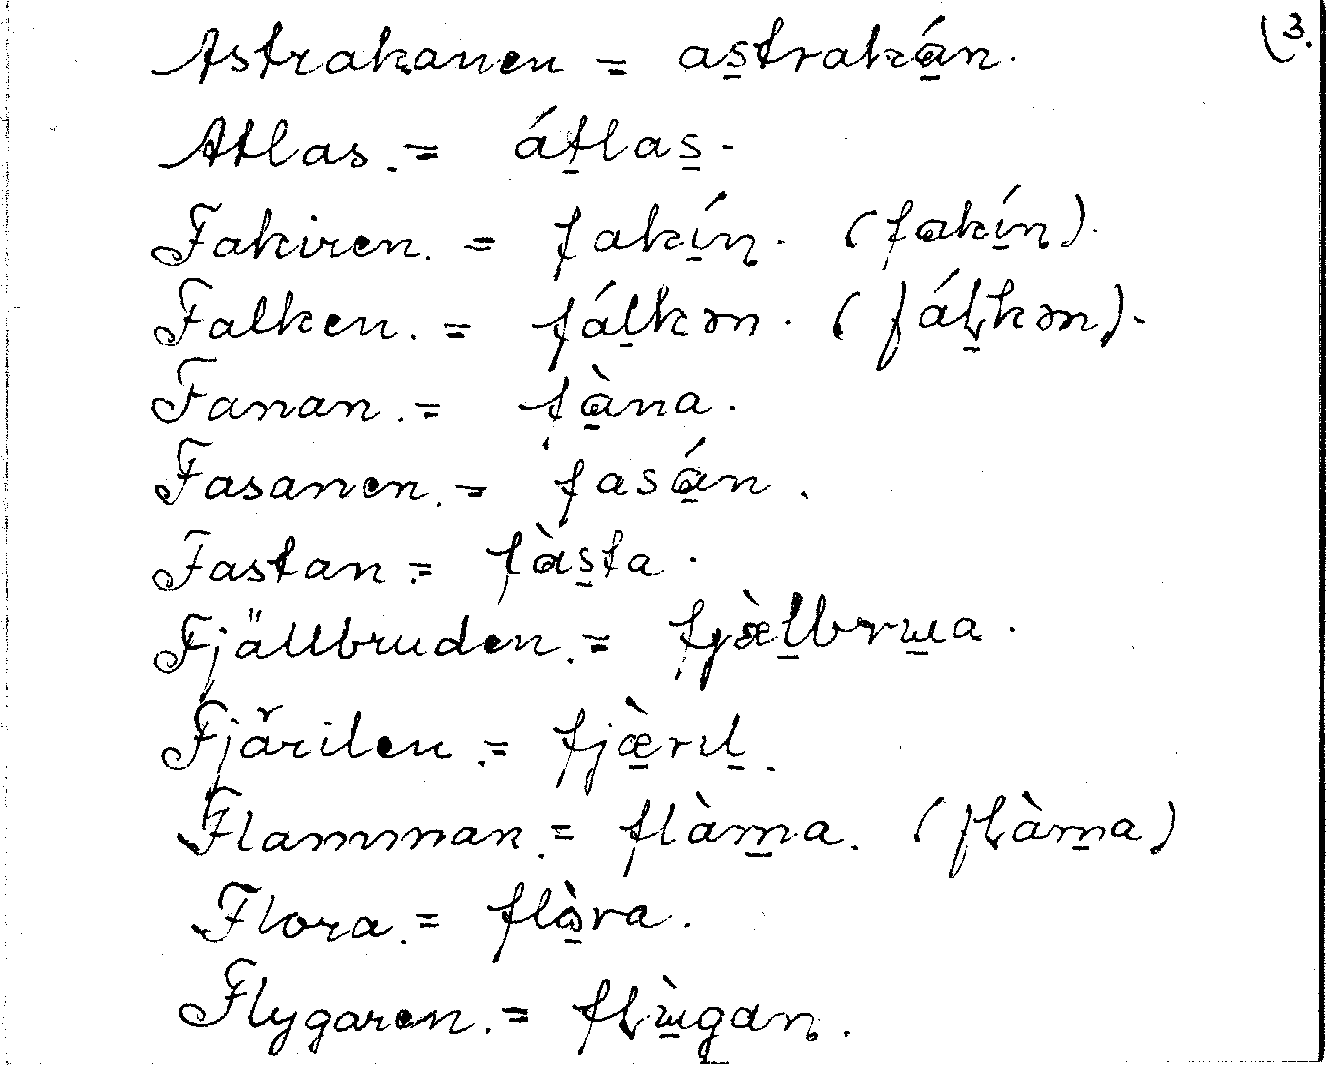 (3.
Astrakanen = as̲traká̲n.
Atlas. = át̲las̲.
Fakiren. = fakí̲ɳ. (fakí̲n).
Falken. = fál̲kən. (fáɭ̲kən).
Fanan. = fɑ̲̀na.
Fasanen. = fasɑ̲́n.
Fastan = fàs̲ta.
Fjällbruden. = fjæ̀l̲brɯ̲a.
Fjärilen. = fjæ̲̀rıl̲.
Flamman. = flàm̲a. (fɭàm̲a)
Flora. = flò̲ra.
Flygaren. = fɭɯ̲̀gaɳ.